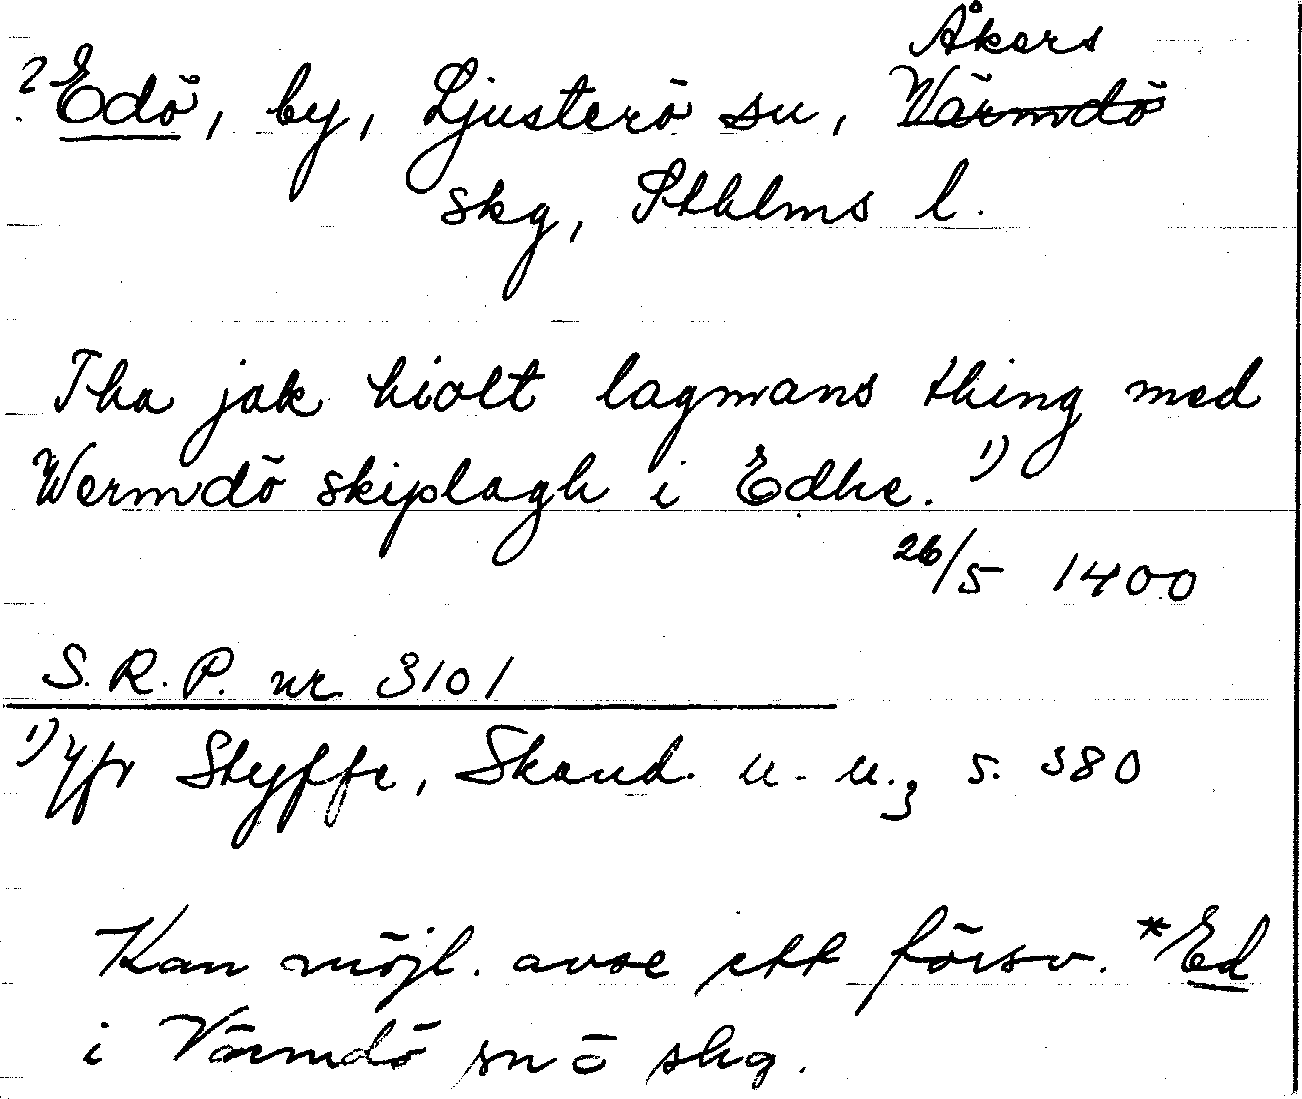 Åkers
? Edö, by, Ljusterö sn, Värmdö
skg, Sthlms l.
Tha jak hiolt lagmans thing med
Wermdö skiplagh i Edhe. 1)
26/5 1400
S. R. P. nr 3101
1) Jfr Styffe, Skand. u. u.3 s. 380
Kan möjl. avse ett försv. *Ed
i Värmdö sn o skg.